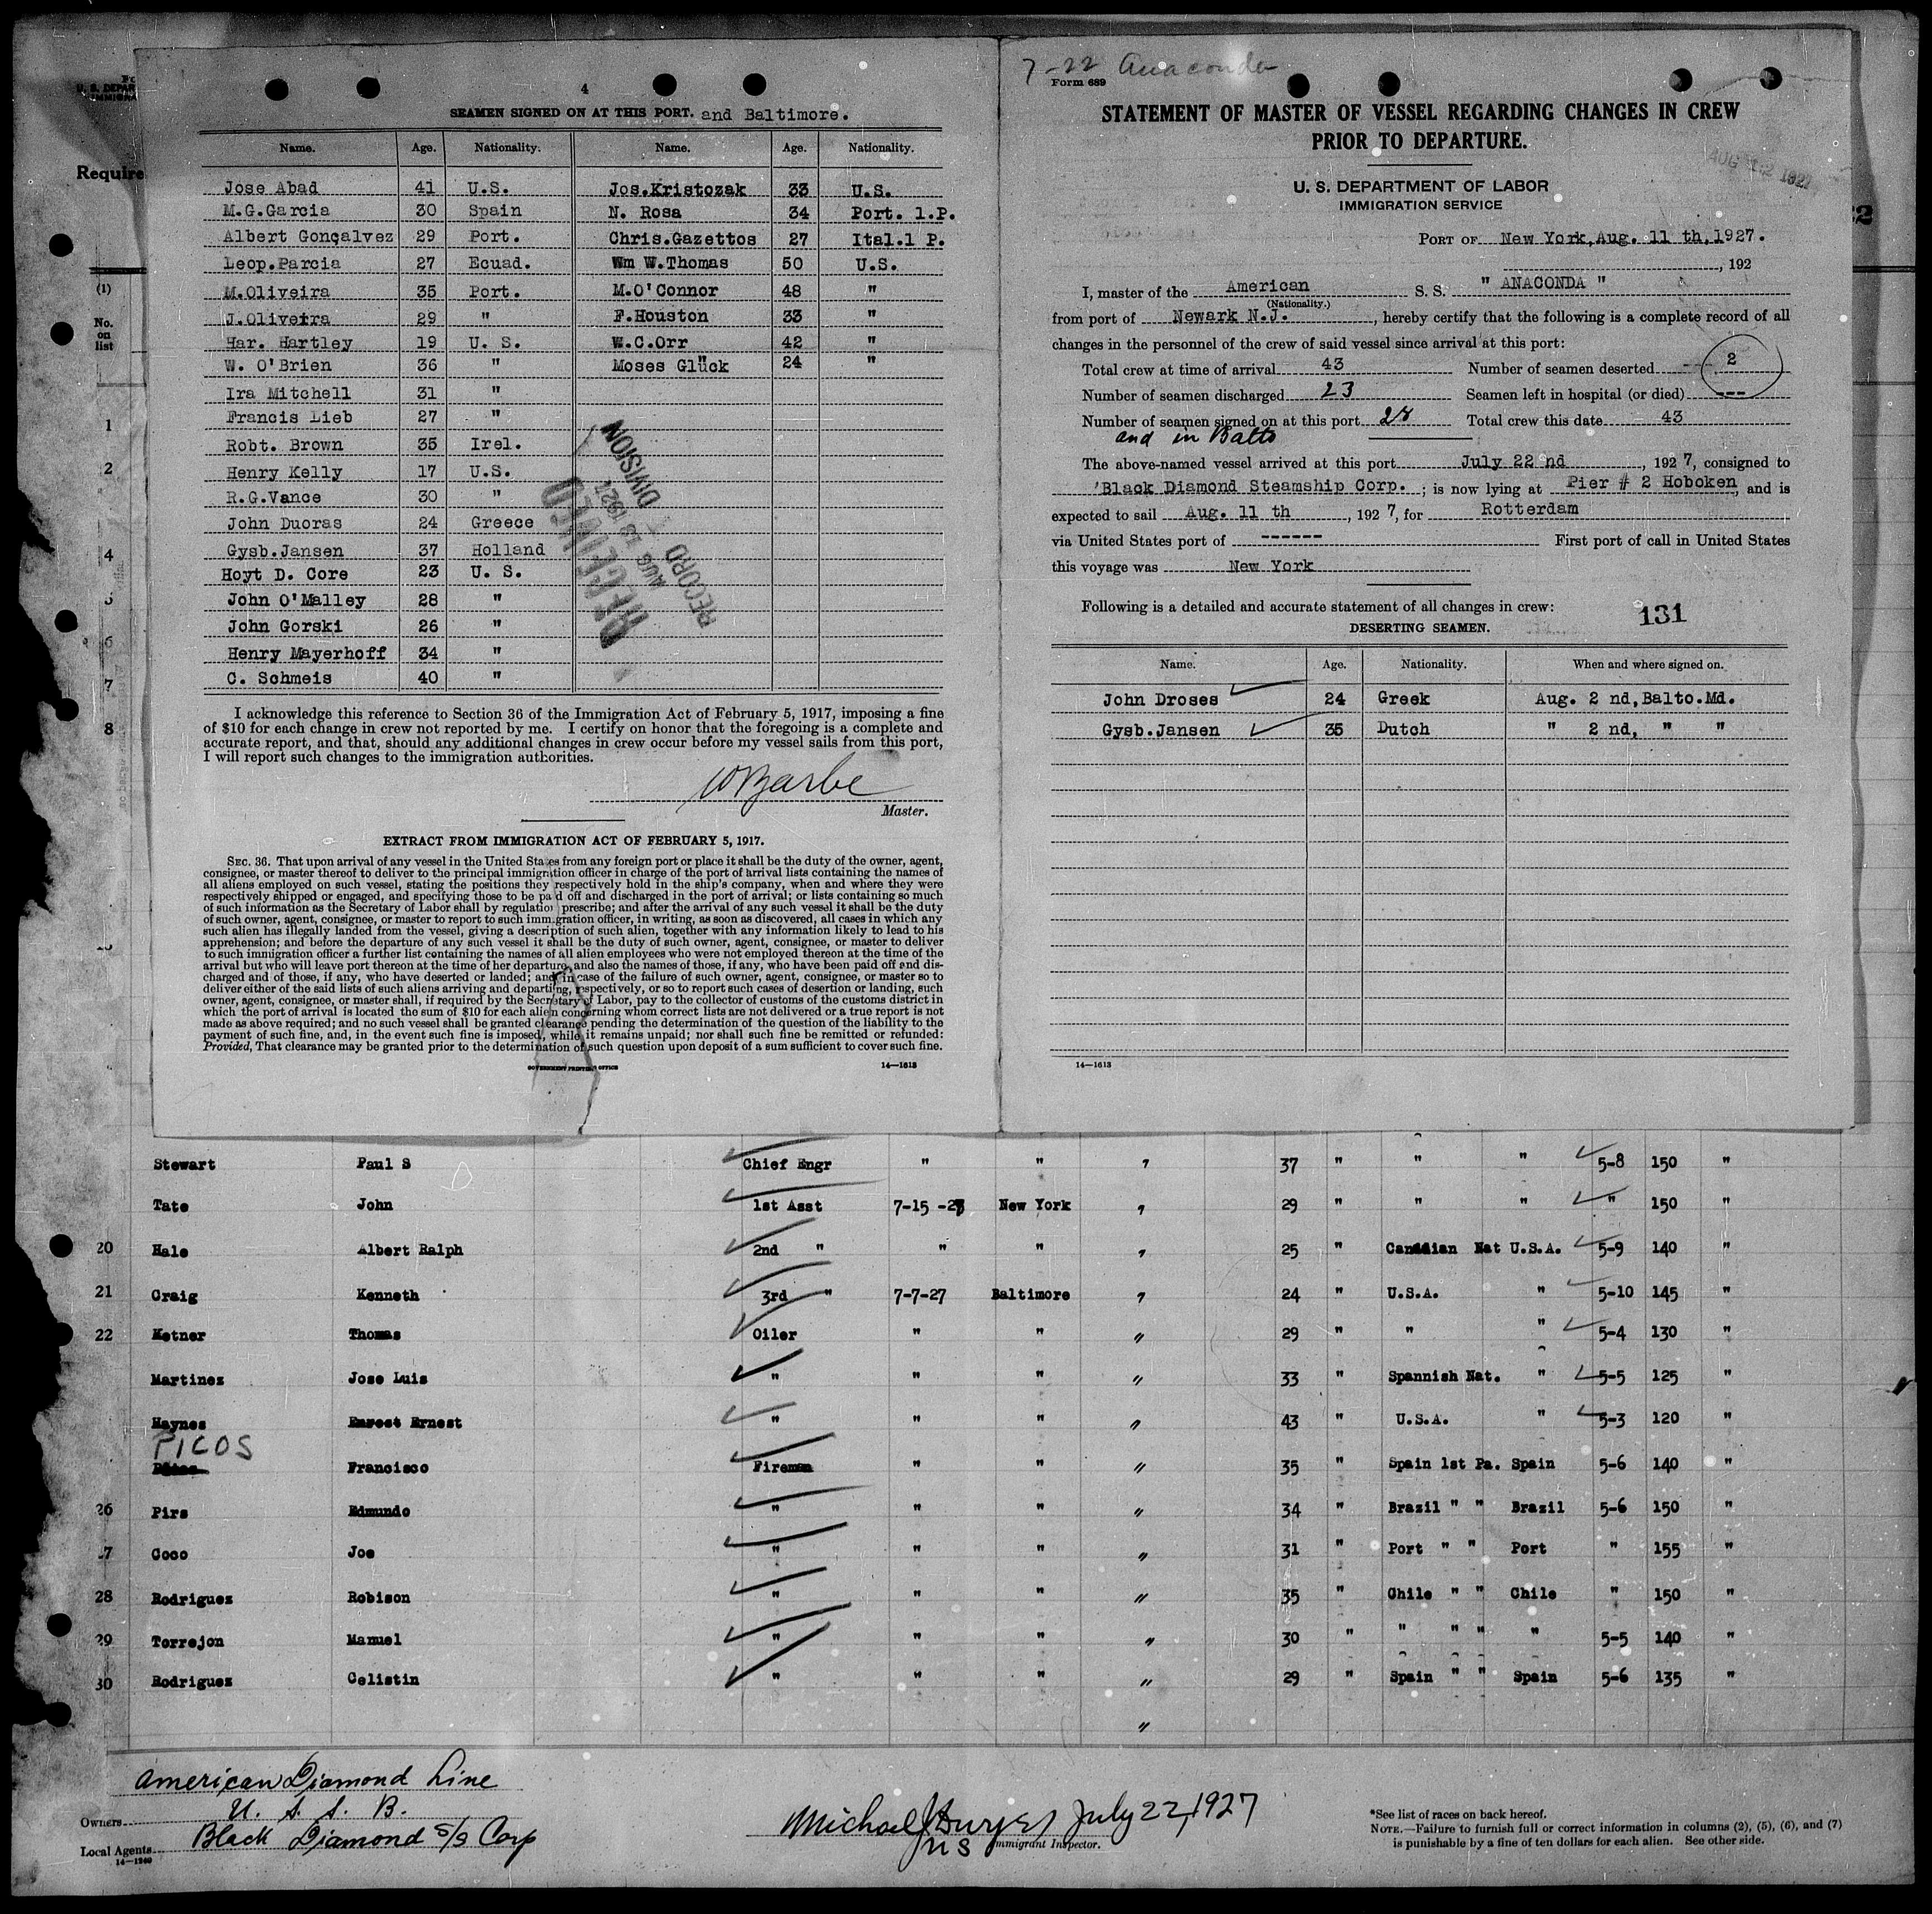 4
SEAMEN SIGNED ON AT THIS PORT. and Baltimore.
Name. Age. Nationality. Name. Age. Nationality.
Jose Abad 41 U.S. Jos.Kristozak 33 U.S.
M.G.Garcia 30 Spain N. Rosa 34 Port. 1.P.
Albert Gonçalvez 29 Port. Chris.Gazettos 27 Ital.1 P.
Leop.Parcia 27 Ecuad. Wm W.Thomas 50 U.S.
M.Oliveira 35 Port. M.O'Connor 48 "
J.Oliveira 29 " F.Houston 33 "
Har. Hartley 19 U. S. W.C.Orr 42 "
W. O'Brien 36 " Moses Glück 24 "
Ira Mitchell 31 "
Francis Lieb 27 "
Robt. Brown 35 Irel.
Henry Kelly 17 U.S.
R.G.Vance 30 "
John Duoras 24 Greece
Gysb.Jansen 37 Holland
Hoyt D. Core 23 U. S.
John O'Malley 28 "
John Gorski 26 "
Henry Mayerhoff 34 "
C. Schmeis 40 "
RECEIVED
AUG 13 1927
RECORD DIVISION
I acknowledge this reference to Section 36 of the Immigration Act of February 5, 1917, imposing a fine
of $10 for each change in crew not reported by me. I certify on honor that the foregoing is a complete and
accurate report, and that, should any additional changes in crew occur before my vessel sails from this port,
I will report such changes to the immigration authorities.
W Barbe
Master.
EXTRACT FROM IMMIGRATION ACT OF FEBRUARY 5, 1917.
SEC. 36. That upon arrival of any vessel in the United States from any foreign port or place it shall be the duty of the owner, agent,
consignee, or master thereof to deliver to the principal immigration officer in charge of the port of arrival lists containing the names of
all aliens employed on such vessel, stating the positions they respectively hold in the ship's company, when and where they were
respectively shipped or engaged, and specifying those to be paid off and discharged in the port of arrival; or lists containing so much
of such information as the Secretary of Labor shall by regulation prescribe; and after the arrival of any such vessel it shall be the duty
of such owner, agent, consignee, or master to report to such immigration officer, in writing, as soon as discovered, all cases in which any
such alien has illegally landed from the vessel, giving a description of such alien, together with any information likely to lead to his
apprehension; and before the departure of any such vessel it shall be the duty of such owner, agent, consignee, or master to deliver
to such immigration officer a further list containing the names of all alien employees who were not employed thereon at the time of the
arrival but who will leave port thereon at the time of her departure, and also the names of those, if any, who have been paid off and dis-
charged and of those, if any, who have deserted or landed; and in case of the failure of such owner, agent, consignee, or master so to
deliver either of the said lists of such aliens arriving and departing, respectively, or so to report such cases of desertion or landing, such
owner, agent, consignee, or master shall, if required by the Secretary of Labor, pay to the collector of customs of the customs district in
which the port of arrival is located the sum of $10 for each alien concerning whom correct lists are not delivered or a true report is not
made as above required; and no such vessel shall be granted clearance pending the determination of the question of the liability to the
payment of such fine, and, in the event such fine is imposed, while it remains unpaid; nor shall such fine be remitted or refunded:
Provided, That clearance may be granted prior to the determination of such question upon deposit of a sum sufficient to cover such fine.
GOVERNMENT PRINTING OFFICE 14—1613
7-22 Anaconda
Form 689
STATEMENT OF MASTER OF VESSEL REGARDING CHANGES IN CREW
PRIOR TO DEPARTURE.
AUG 12 1927
U. S. DEPARTMENT OF LABOR
IMMIGRATION SERVICE
PORT OF New York, Aug. 11 th, 1927.
, 192
I, master of the American S. S. " ANACONDA "
(Nationality.)
from port of Newark N.J. , hereby certify that the following is a complete record of all
changes in the personnel of the crew of said vessel since arrival at this port:
Total crew at time of arrival 43 Number of seamen deserted 2
Number of seamen discharged 23 Seamen left in hospital (or died) ---
Number of seamen signed on at this port 28 Total crew this date 43
and in Balto
The above-named vessel arrived at this port July 22 nd , 1927, consigned to
'Black Diamond Steamship Corp. ; is now lying at Pier # 2 Hoboken, and is
expected to sail Aug. 11 th , 1927, for Rotterdam
via United States port of ------ First port of call in United States
this voyage was New York
Following is a detailed and accurate statement of all changes in crew: 131
DESERTING SEAMEN.
Name. Age. Nationality. When and where signed on.
John Droses 24 Greek Aug. 2 nd, Balto.Md.
Gysb.Jansen 35 Dutch " 2 nd, " "
14—1613
Require
(1)
No.
on
list
1
2
4
5
6
7
8
Stewart Paul S Chief Engr " " " 37 " " " 5-8 150 "
Tate John 1st Asst 7-15-27 New York " 29 " " " " 150 "
20 Hale Albert Ralph 2nd " " " " 25 " Canadian Nat U.S.A. 5-9 140 "
21 Craig Kenneth 3rd " 7-7-27 Baltimore " 24 " U.S.A. " 5-10 145 "
22 Ketner Thomas Oiler " " " 29 " " " 5-4 130 "
Martinez Jose Luis " " " " 33 " Spannish Nat. " 5-5 125 "
Haynes Ernest " " " " 43 " U.S.A. " 5-3 120 "
PICOS Francisco Fireman " " " 35 " Spain 1st Pa. Spain 5-6 140 "
26 Pirs Edmundo " " " " 34 " Brazil " " Brazil 5-6 150 "
27 Coco Joe " " " " 31 " Port " " Port " 155 "
28 Rodriguez Robison " " " " 35 " Chile " " Chile " 150 "
29 Torrejon Manuel " " " " 30 " " " " " 5-5 140 "
30 Rodriguez Celistin " " " " 29 " Spain " " Spain 5-6 135 "
"
American Diamond Line
Owners U. S. S. B.
Local Agents Black Diamond S/S Corp
14—1240
Michael J July 22, 1927
Immigrant Inspector.
*See list of races on back hereof.
NOTE.—Failure to furnish full or correct information in columns (2), (5), (6), and (7)
is punishable by a fine of ten dollars for each alien. See other side.